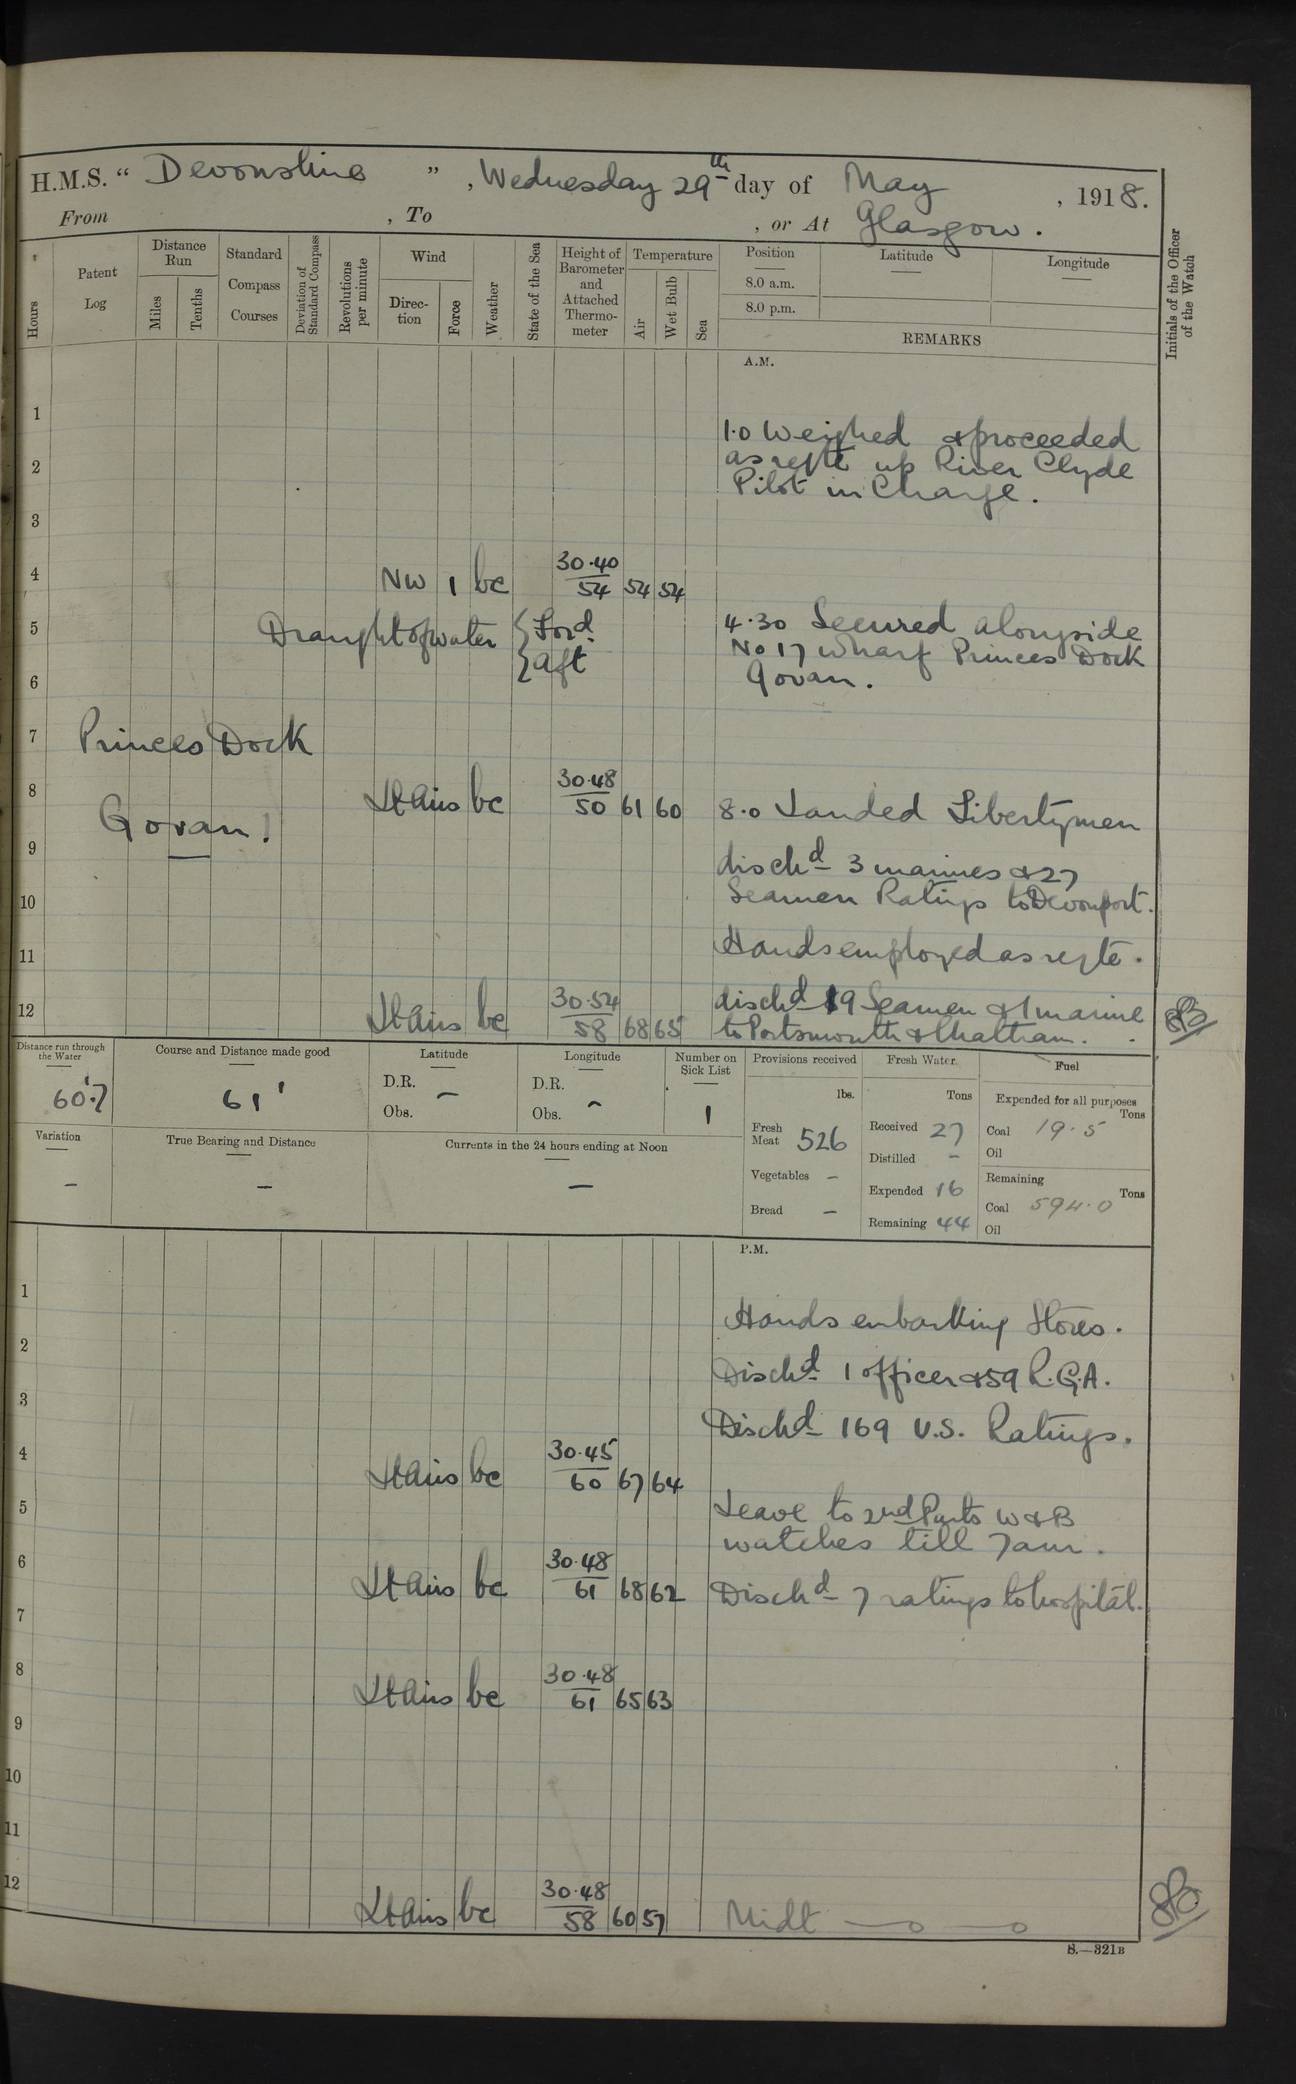 H.M.S. “ Devonshire ” , Wednesday 29th day of May , 1918.
From , To , or At Glasgow.
Hours
Patent Log
Distance Run
Miles
Tenths
Standard Compass Courses
Deviation of Standard Compass
Revolutions per minute
Wind
Direc-tion
Force
Weather
State of the Sea
Height of Barometer and Attached Thermo-meter
Temperature
Air
Wet Bulb
Sea
Position
8.0 a.m.
8.0 p.m.
Latitude
Longitude
REMARKS
Initials of the Officer of the Watch
A.M.
1
1.0 Weighed & proceeded
2 as reqte up River Clyde
Pilot in Charge.
3
4 NW 1 bc 30.40 54 54 54
5 Draught of water { Ford. 4.30 Secured alongside
} aft No 17 Wharf Princes Dock
6 Govan.
7 Princes Dock
8 Lt Airs bc 30.48 50 61 60 8.0 Landed Libertymen
Govan!
9 dischd 3 marines & 27
10 Seamen Ratings to Devonport.
11 Hands employed as reqte.
12 Lt Airs bc 30.54 58 68 65 dischd 19 Seamen & 1 marine
to Portsmouth & Chatham.
Distance run through the Water
60'.7
Course and Distance made good
61'
Latitude
D.R. –
Obs.
Longitude
D.R.
Obs. –
Number on Sick List
1
Provisions received
lbs.
Fresh Meat 526
Vegetables –
Bread –
Fresh Water.
Tons
Received 27
Distilled –
Expended 16
Remaining 44
Fuel
Expended for all purposes
Tons
Coal 19.5
Oil
Remaining
Tons
Coal 594.0
Oil
Variation
–
True Bearing and Distance
–
Currents in the 24 hours ending at Noon
–
P.M.
1
Hands embarking Stores.
2
Dischd 1 officer & 59 R.G.A.
3
Dischd 169 U.S. Ratings.
4 Lt Airs bc 30.45 60 67 64
5 Leave to 2nd Parts W & B
watches till 7am.
6 Lt Airs bc 30.48 61 68 62 Dischd 7 ratings to hospital.
7
8 Lt Airs bc 30.48 61 65 63
9
10
11
12 Lt Airs bc 30.48 58 60 57 Midt
S.—321B